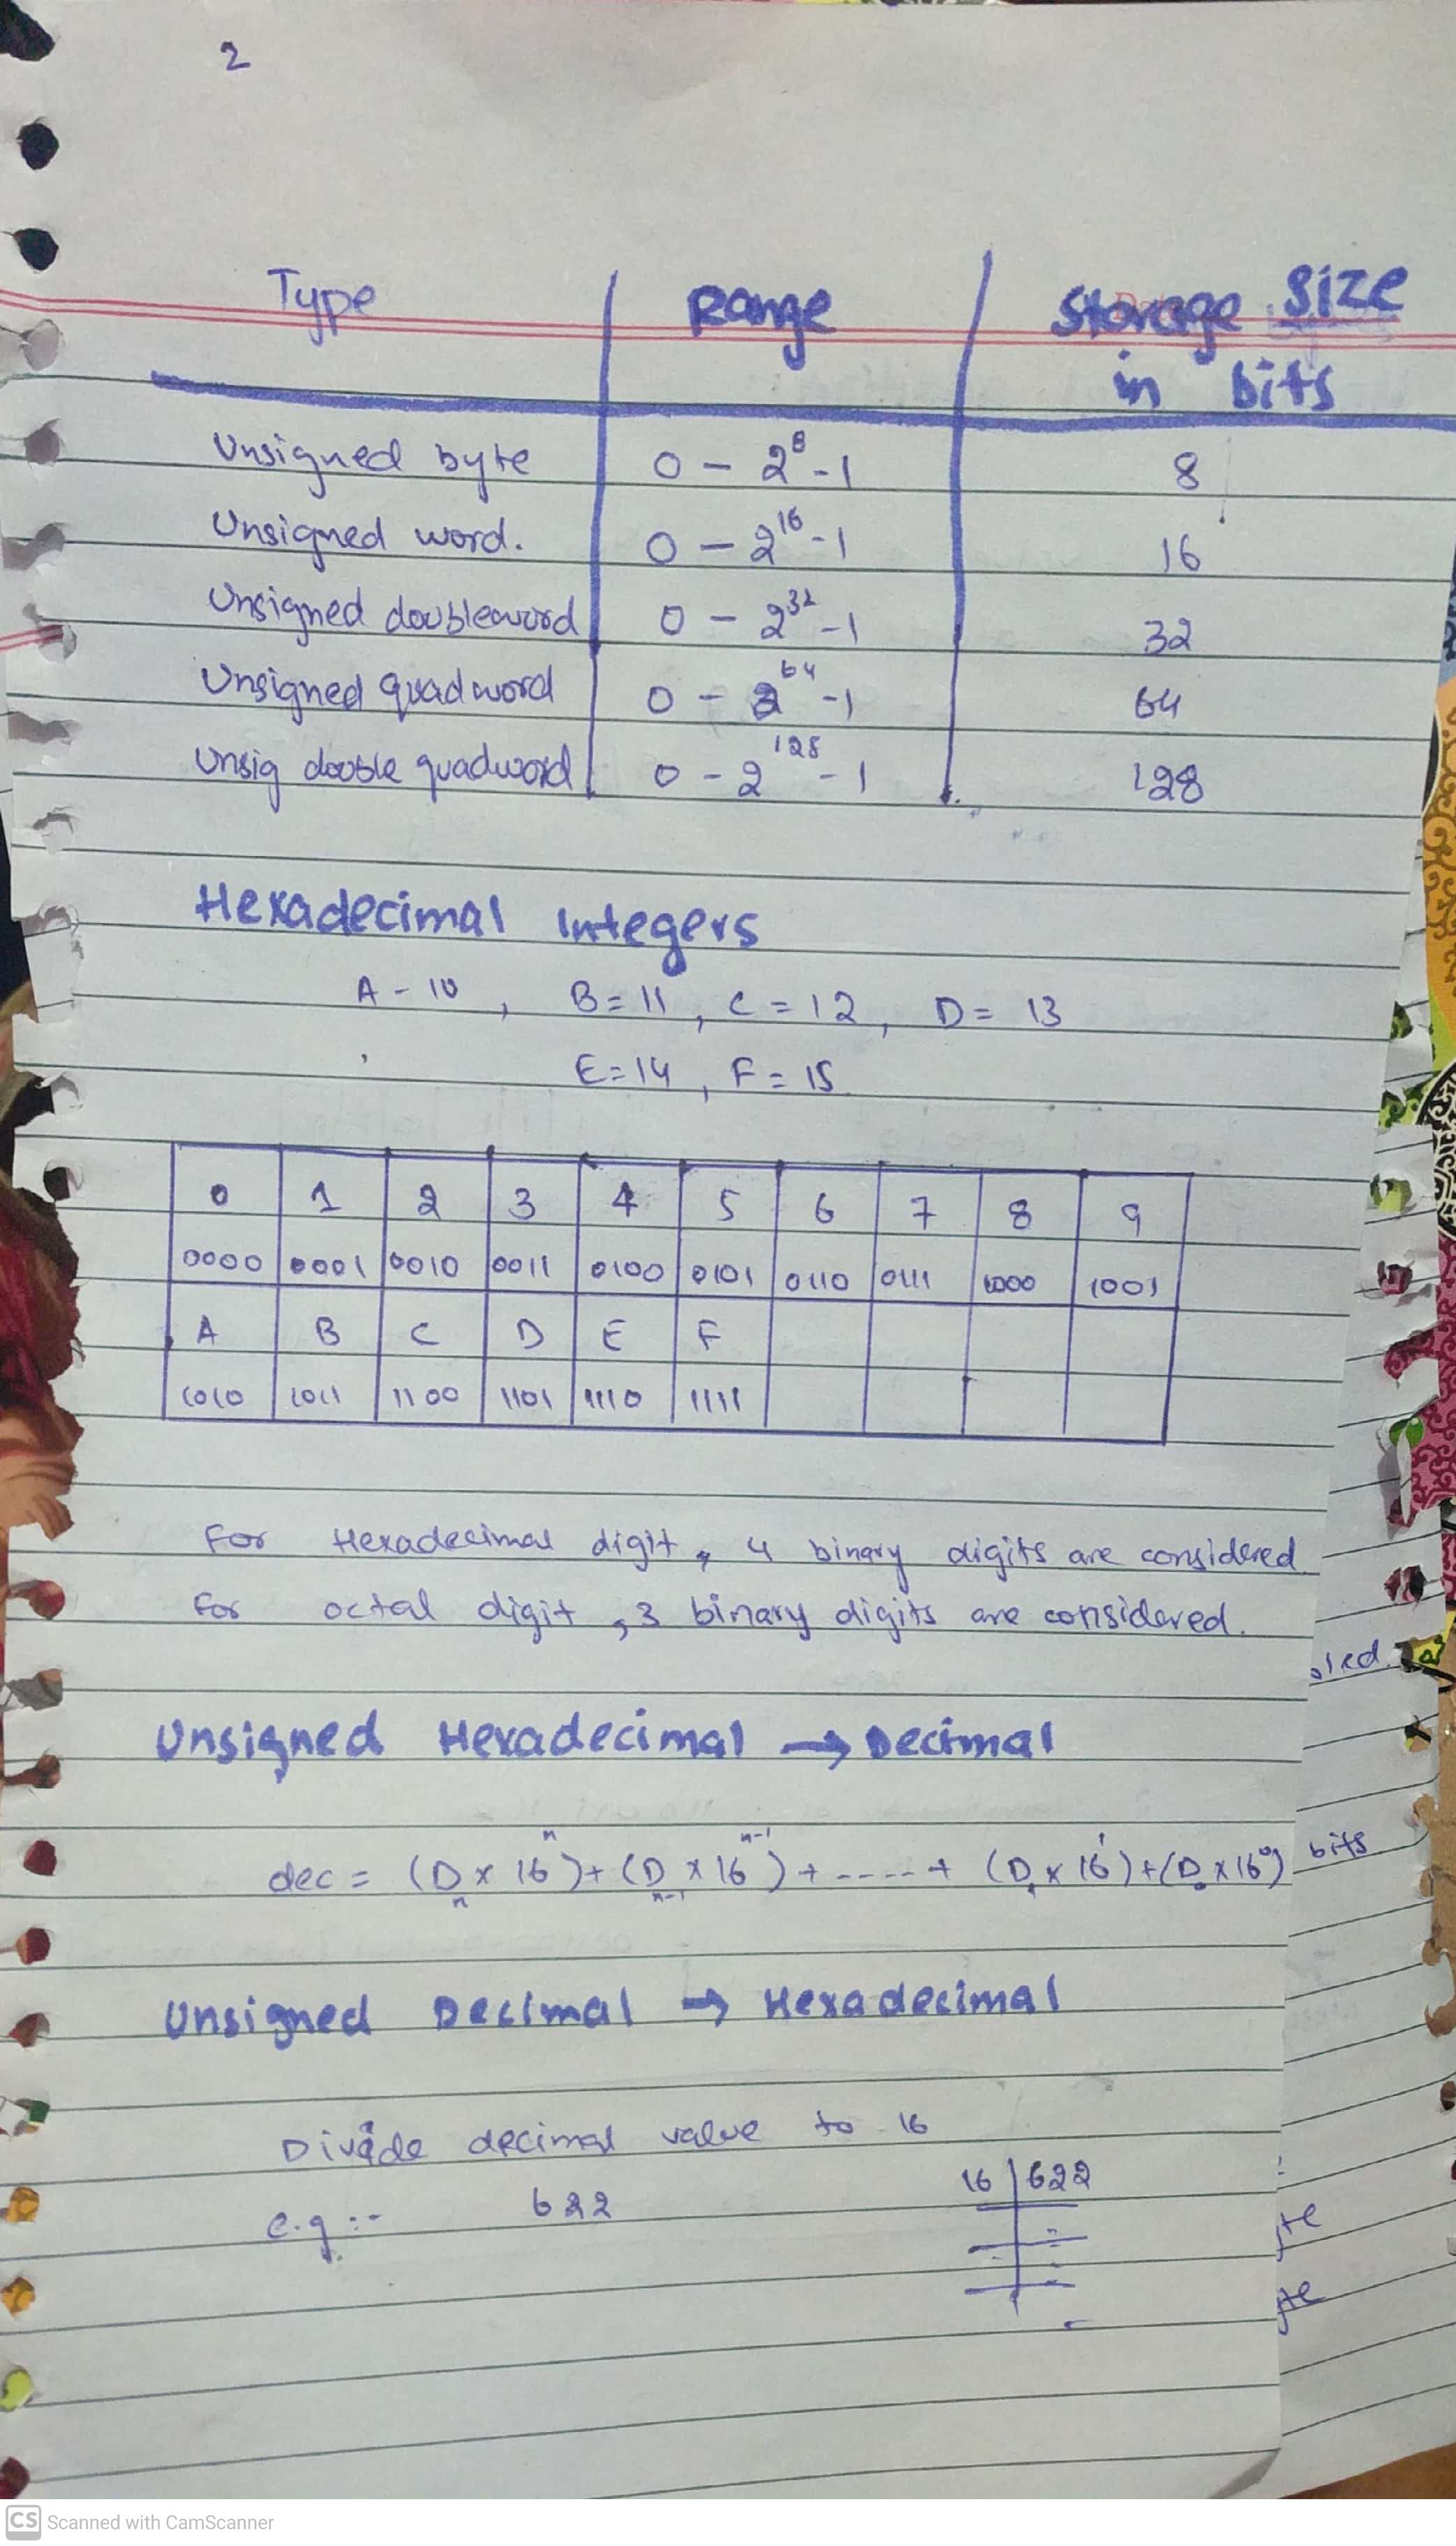 2
Type Range Storage Size
in bits
Unsigned byte 0 - 2⁸-1 8
Unsigned word. 0 - 2¹⁶-1 16
Unsigned doubleword 0 - 2³²-1 32
Unsigned quadword 0 - 2⁶⁴-1 64
Unsig double quadword 0 - 2¹²⁸-1 128
Hexadecimal Integers
A - 10 , B = 11 , C = 12 , D = 13
E = 14 , F = 15
0 1 2 3 4 5 6 7 8 9
0000 0001 0010 0011 0100 0101 0110 0111 1000 1001
A B C D E F
1010 1011 1100 1101 1110 1111
For Hexadecimal digit, 4 binary digits are considered.
For octal digit, 3 binary digits are considered.
Unsigned Hexadecimal → Decimal
dec = (Dₙ x 16ⁿ) + (Dₙ₋₁ x 16ⁿ⁻¹) + ..... + (D₁ x 16¹) + (D₀ x 16⁰)
bits
Unsigned Decimal → Hexadecimal
Divide decimal value to 16
e.g :- 622 16 | 622
CS Scanned with CamScanner